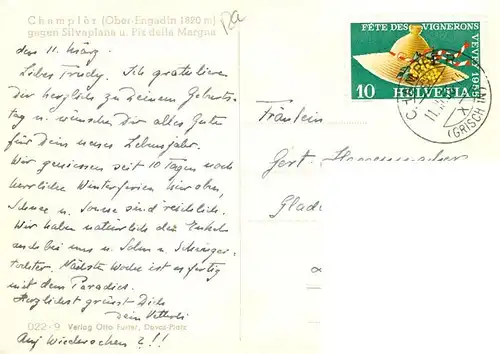 Champfèr (Ober-Engadin 1820 m)
gegen Silvaplana u. Piz della Margna
den 11. März.
Liebes Trudy. Ich gratuliere
Dir herzlich zu Deinem Geburts-
tag u. wünsche Dir alles Gute
für Dein neues Lebensjahr.
Wir geniessen seit 10 Tagen noch
herrliche Winterferien hier oben,
Schnee u. Sonne sind reichlich.
Wir haben natürlich die Enkel
auch bei uns u. Sohn u. Schwieger-
tochter. Nächste Woche ist es fertig
mit dem Paradies.
Herzlichst grüsst Dich
Dein
022-9 Verlag Otto Furter, Davos-Platz
Auf Wiedersehen ?!!
FÊTE DES VIGNERONS
VEVEY
10 HELVETIA
(GRISCHUN)
Fräulein
Gert.
Glad